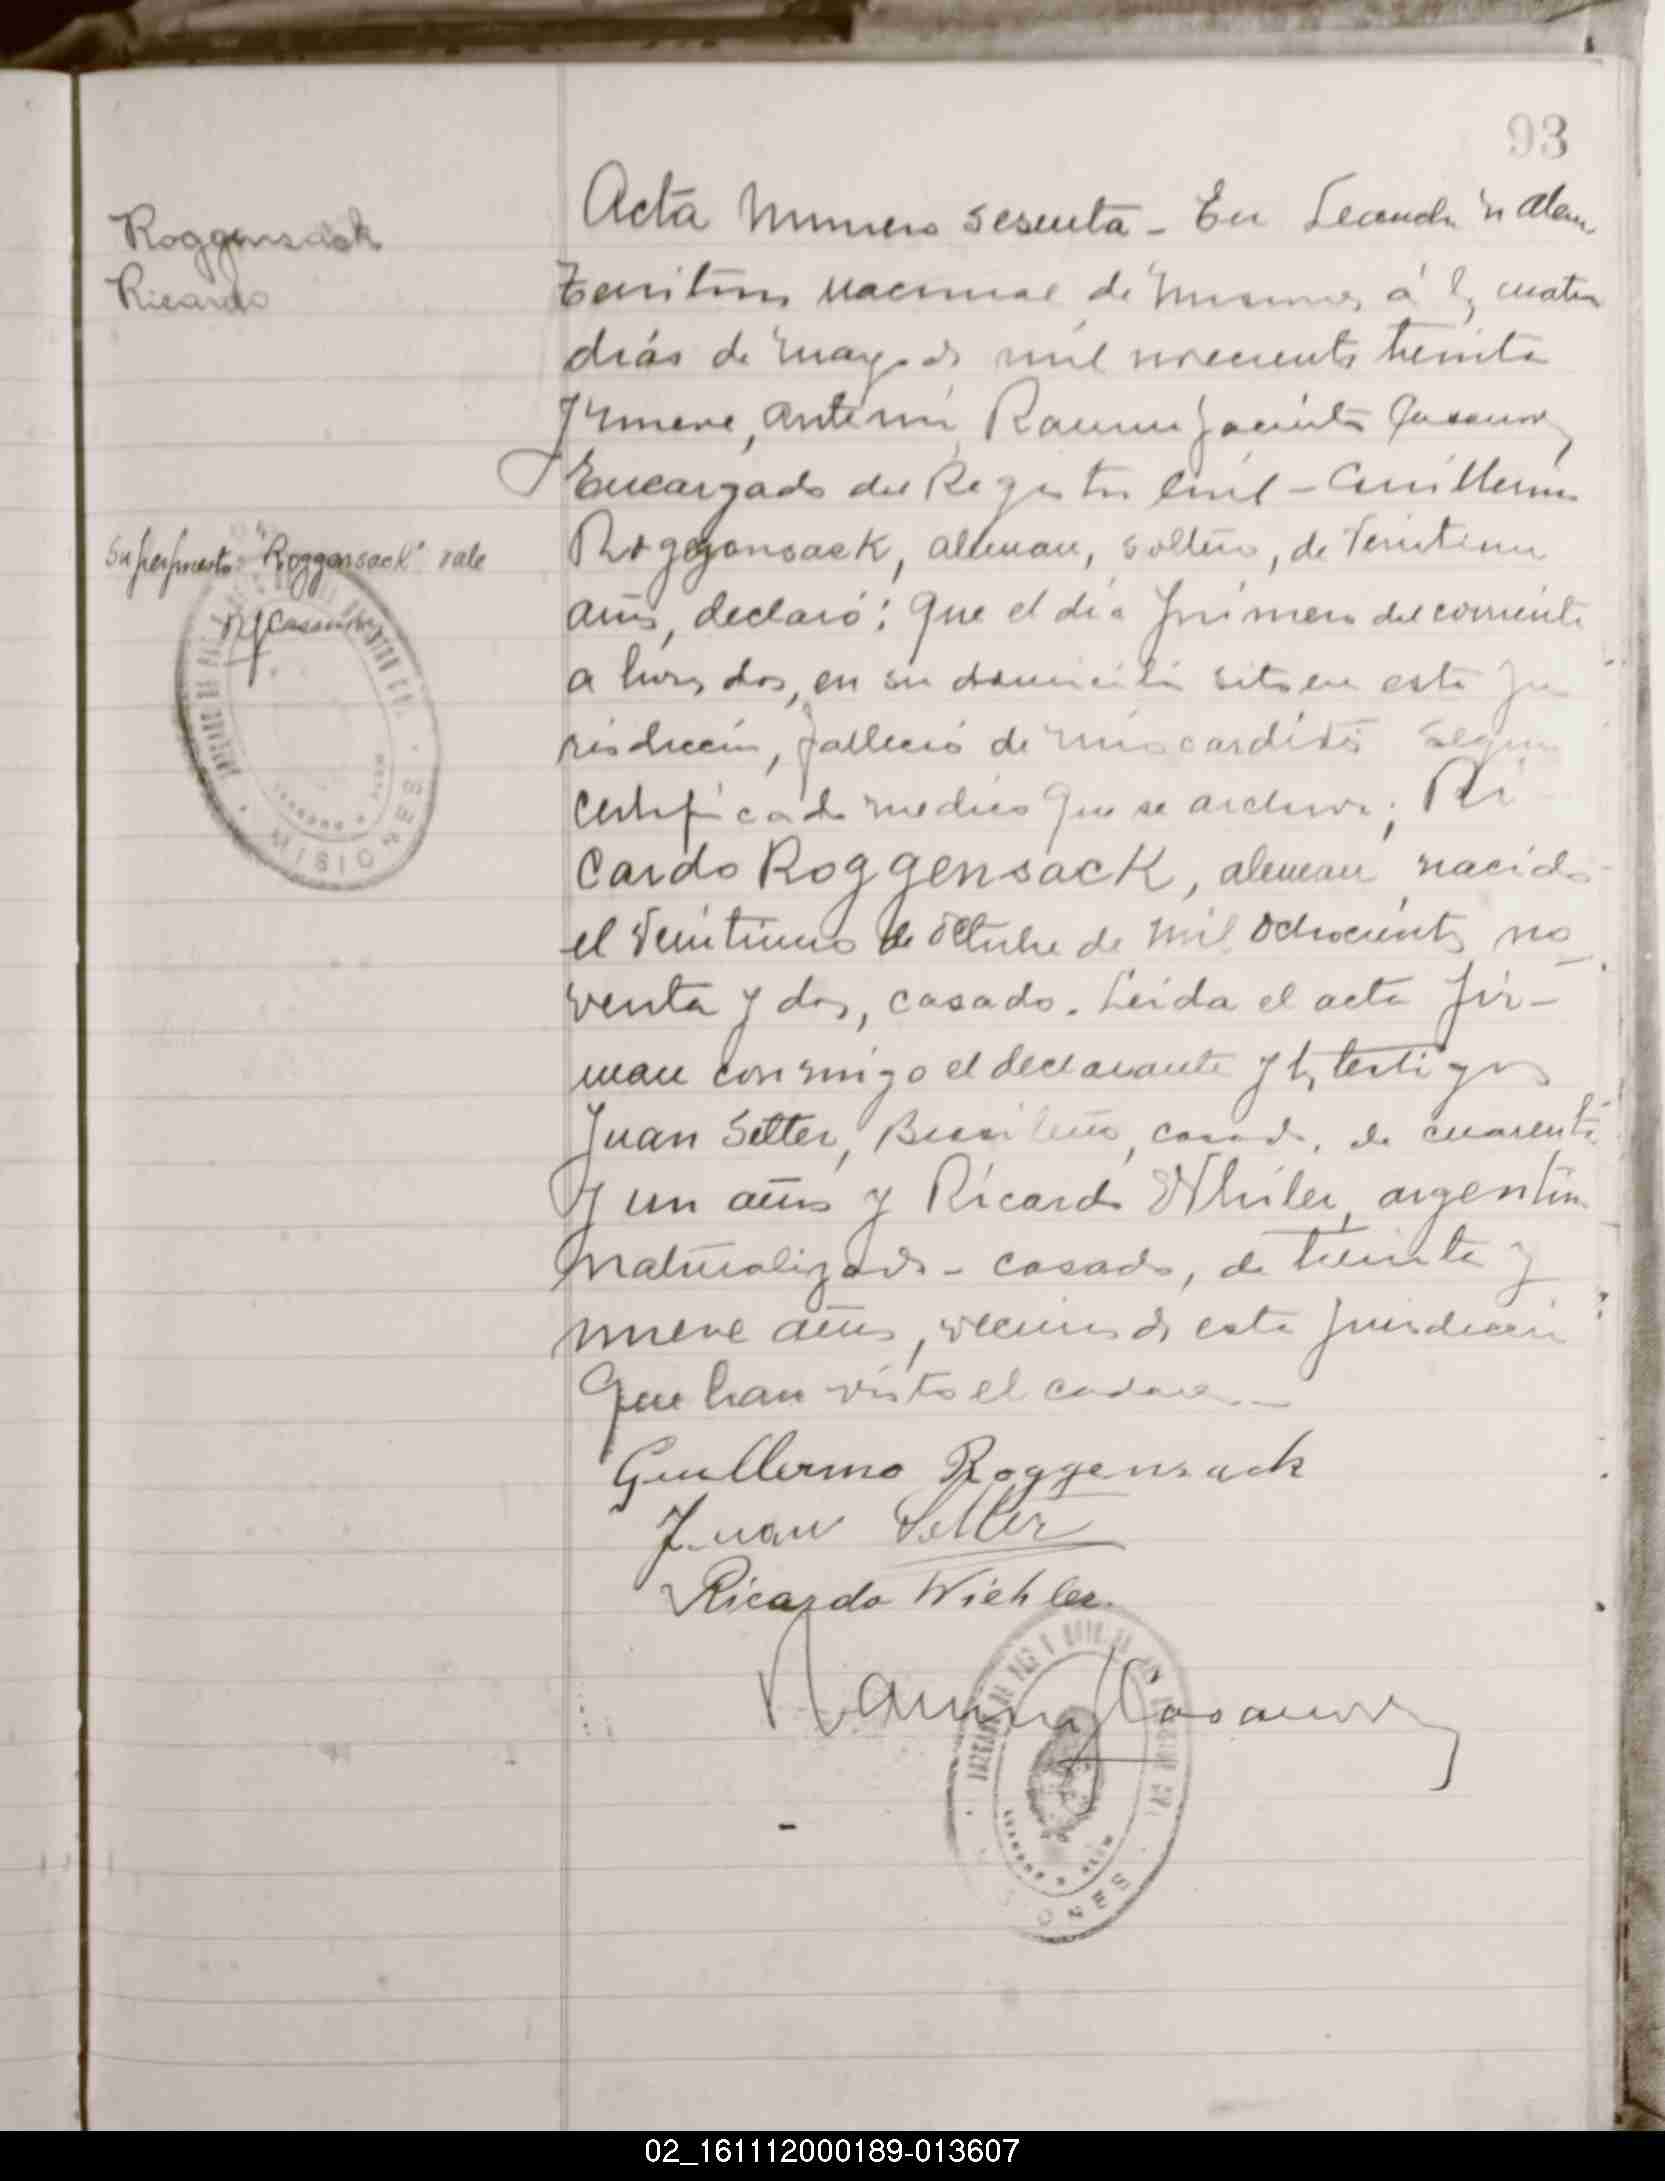 93
Roggensack
Ricardo
Acta Numero sesenta - En Leandro N Alem
Territorio Nacional de Misiones á los cuatro
dias de Mayo de mil novecientos treinta
y nueve, ante mi Ramon Jacinto Casanova
Encargado del Registro Civil - Guillermo
Roggensack, aleman, soltero, de veintiun
años, declaró: Que el dia primero del corriente
a horas dos, en su domicilio sito en esta ju
risdiccion, falleció de miocarditis segun
certificado medico que se archiva; Ri
cardo Roggensack, aleman nacido
el veintiuno de octubre de mil ochocientos no
venta y dos, casado. Leida el acta fir-
man conmigo el declarante y los testigos
Juan Setter, Brasileño, casado, de cuarenta
y un años y Ricardo Whiler, argentino
naturalizado - casado, de treinta y
nueve años, vecinos de esta jurisdiccion
que han visto el cadaver.-
Superpuesto: "Roggensack" vale
RJCasanova
MISIONES
Guillermo Roggensack
Juan Setter
Ricardo Wiehler.
Ramon J Casanova
02_161112000189-013607